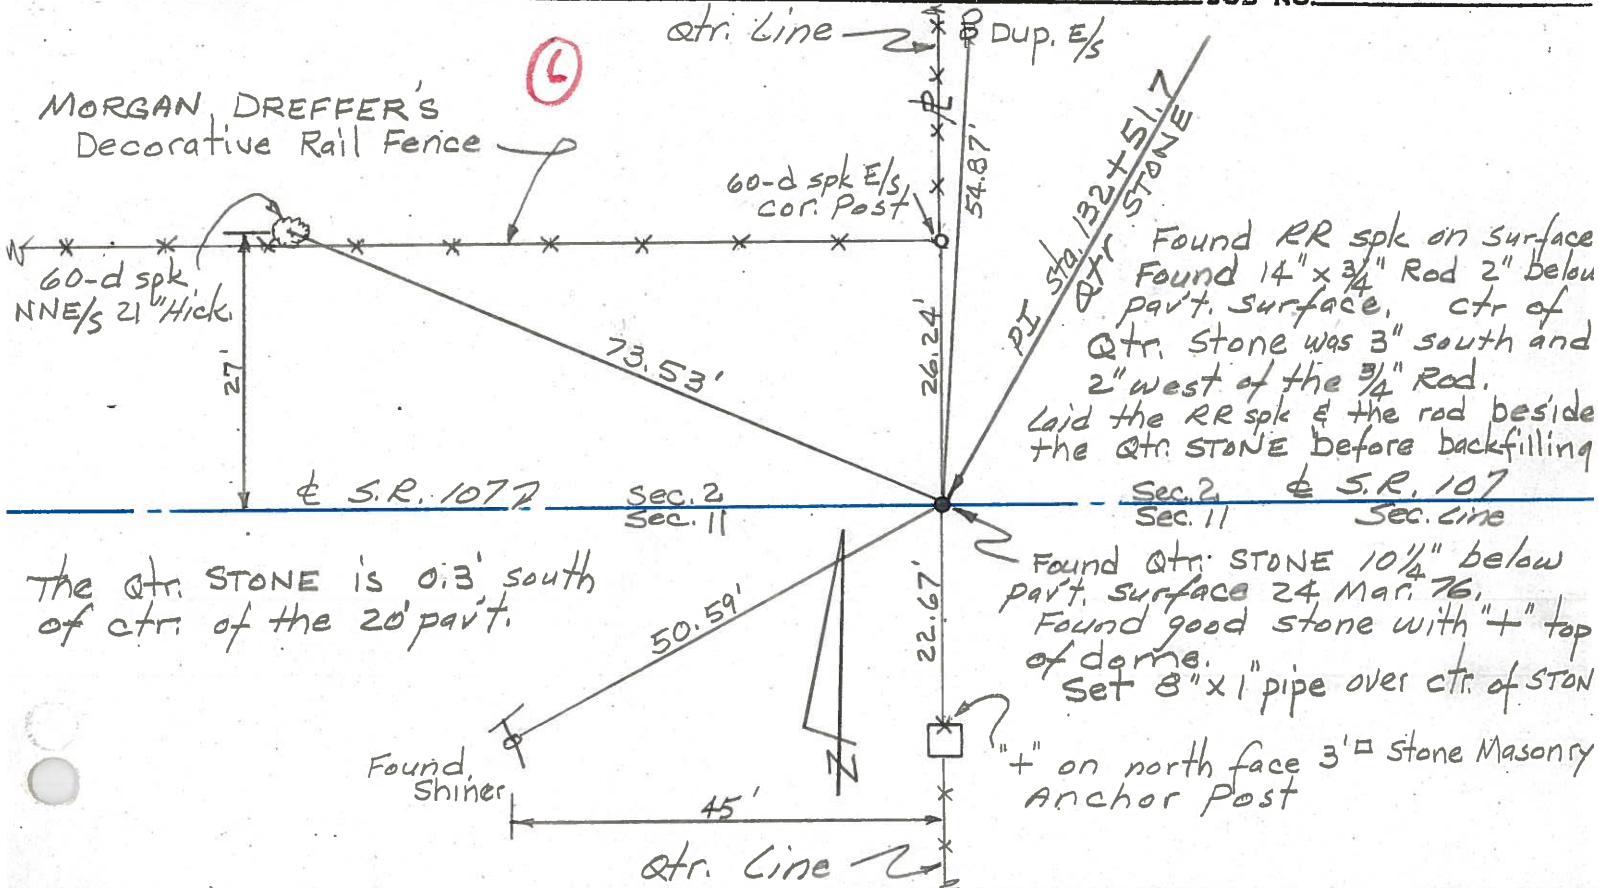 JOB NO.
Qtr. Line
Dup. E/S
6
MORGAN DREFFER'S
Decorative Rail Fence
60-d spk E/S
cor. Post
PL
54.87'
PI Sta. 132+51.7
Qtr STONE
60-d spk
NNE/S 21" Hick.
27'
73.53'
26.24'
Found RR spk on surface
Found 14" x 3/4" Rod 2" below
pav't. surface. ctr of
Qtr. Stone was 3" south and
2" west of the 3/4" Rod.
Laid the RR spk & the rod beside
the Qtr. STONE before backfilling
℄ S.R. 107
Sec. 2
Sec. 11
Sec. 2
Sec. 11
℄ S.R. 107
Sec. Line
The Qtr. STONE is 0.3' south
of ctr. of the 20' pav't.
50.59'
22.67'
Found Qtr. STONE 10 1/4" below
pav't. surface 24 Mar. 76.
Found good stone with "+" top
of dome.
Set 8" x 1" pipe over ctr. of STON
Found
Shiner
N
"+" on north face 3' □ Stone Masonry
Anchor Post
45'
Qtr. Line